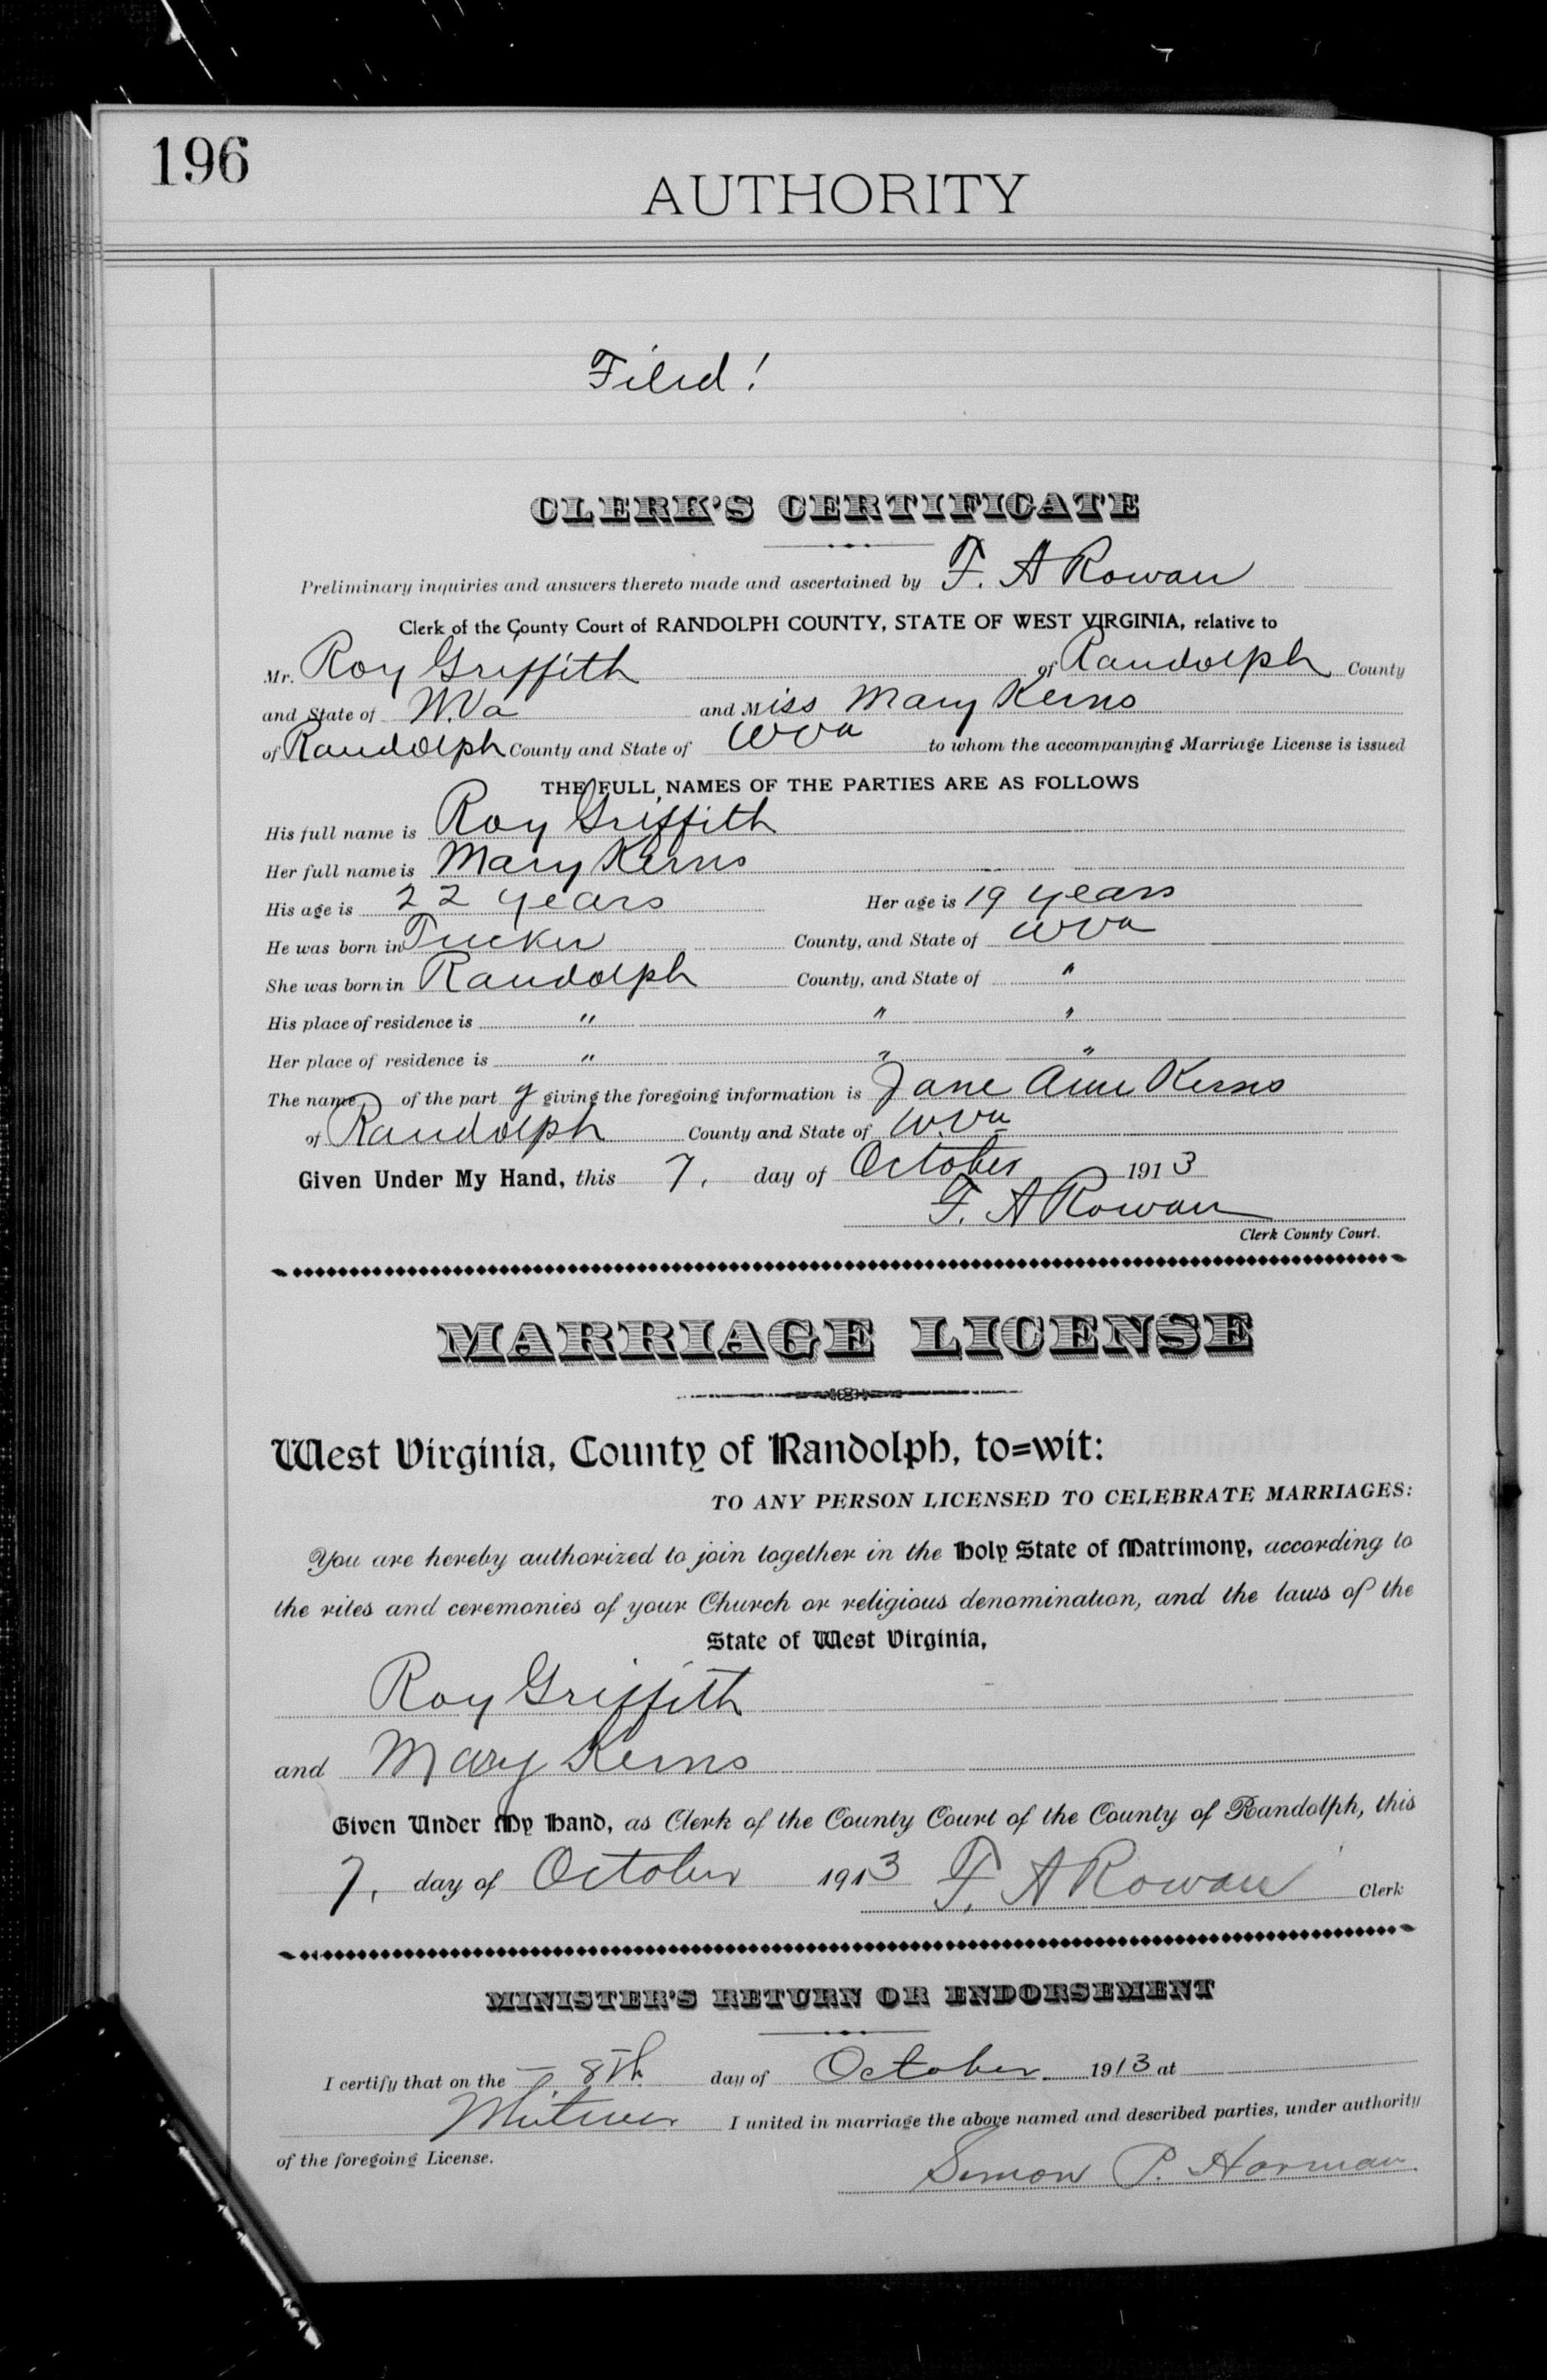 196
AUTHORITY
Filed!
CLERK'S CERTIFICATE
Preliminary inquiries and answers thereto made and ascertained by F. A Rowan
Clerk of the County Court of RANDOLPH COUNTY, STATE OF WEST VIRGINIA, relative to
Mr. Roy Griffith of Randolph County
and State of W.Va and Miss Mary Kerns
of Randolph County and State of WVa to whom the accompanying Marriage License is issued
THE FULL NAMES OF THE PARTIES ARE AS FOLLOWS
His full name is Roy Griffith
Her full name is Mary Kerns
His age is 22 years Her age is 19 years
He was born in Tucker County, and State of WVa
She was born in Randolph County, and State of "
His place of residence is " " "
Her place of residence is " " "
The name of the part y giving the foregoing information is Jane Ann Kerns
of Randolph County and State of W.Va
Given Under My Hand, this 7, day of October 1913
F. A Rowan
Clerk County Court.
MARRIAGE LICENSE
West Virginia, County of Randolph, to=wit:
TO ANY PERSON LICENSED TO CELEBRATE MARRIAGES:
You are hereby authorized to join together in the Holy State of Matrimony, according to
the rites and ceremonies of your Church or religious denomination, and the laws of the
State of West Virginia,
Roy Griffith
and Mary Kerns
Given Under My Hand, as Clerk of the County Court of the County of Randolph, this
7, day of October 1913 F. A Rowan Clerk
MINISTER'S RETURN OR ENDORSEMENT
I certify that on the 8th day of October 1913 at
Whitmer I united in marriage the above named and described parties, under authority
of the foregoing License.
Simon P. Harman